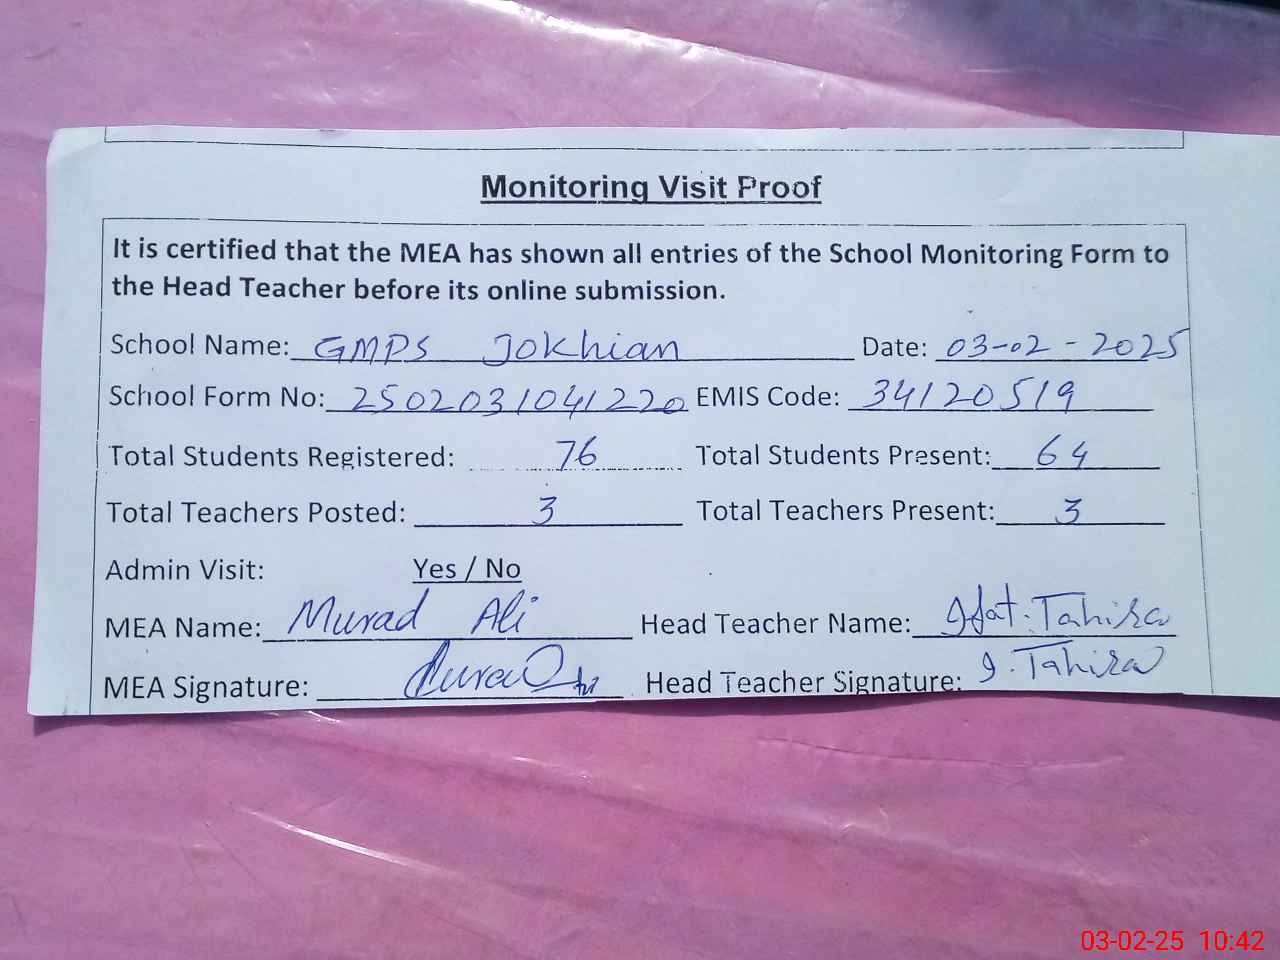 Monitoring Visit Proof
It is certified that the MEA has shown all entries of the School Monitoring Form to
the Head Teacher before its online submission.
School Name: GMPS Jokhian Date: 03-02-2025
School Form No: 2502031041220 EMIS Code: 34120519
Total Students Registered: 76 Total Students Present: 64
Total Teachers Posted: 3 Total Teachers Present: 3
Admin Visit: Yes / No
MEA Name: Murad Ali Head Teacher Name: Iffat. Tahira
MEA Signature: Head Teacher Signature: I. Tahira
03-02-25 10:42